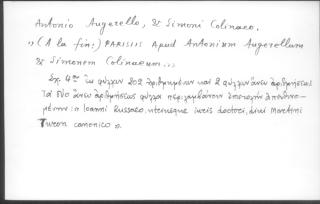 Antonio Augerello, & Simoni Colinaeo.
„(A la fin:) PARISIIS Apud Antonium Augerellum
& Simonem Colinaeum.„
Σχ. 4ον ἐκ φύλλων 202 ἀριθμημένων καὶ 2 φύλλων ἄνευ ἀριθμήσεως
τὰ δύο ἄνευ ἀριθμήσεως φύλλα περιλαμβάνουν ἐπιστολὴν
μένην: „Ioanni Russaeo utriusque iuris doctori, divi Martini
Turon canonico „.